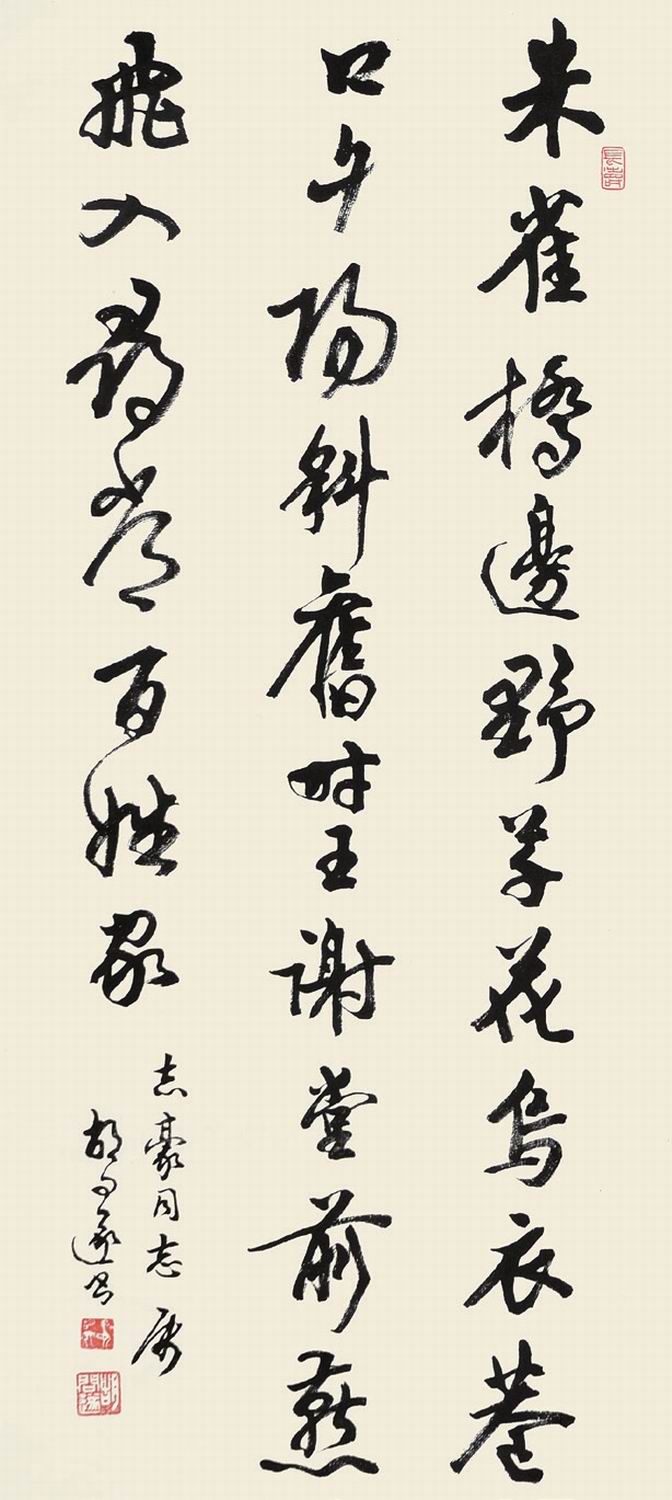 朱雀橋邊野草花烏衣巷
口夕陽斜舊時王謝堂前燕
飛入尋常百姓家
志豪同志屬
胡問遂書
胡問遂